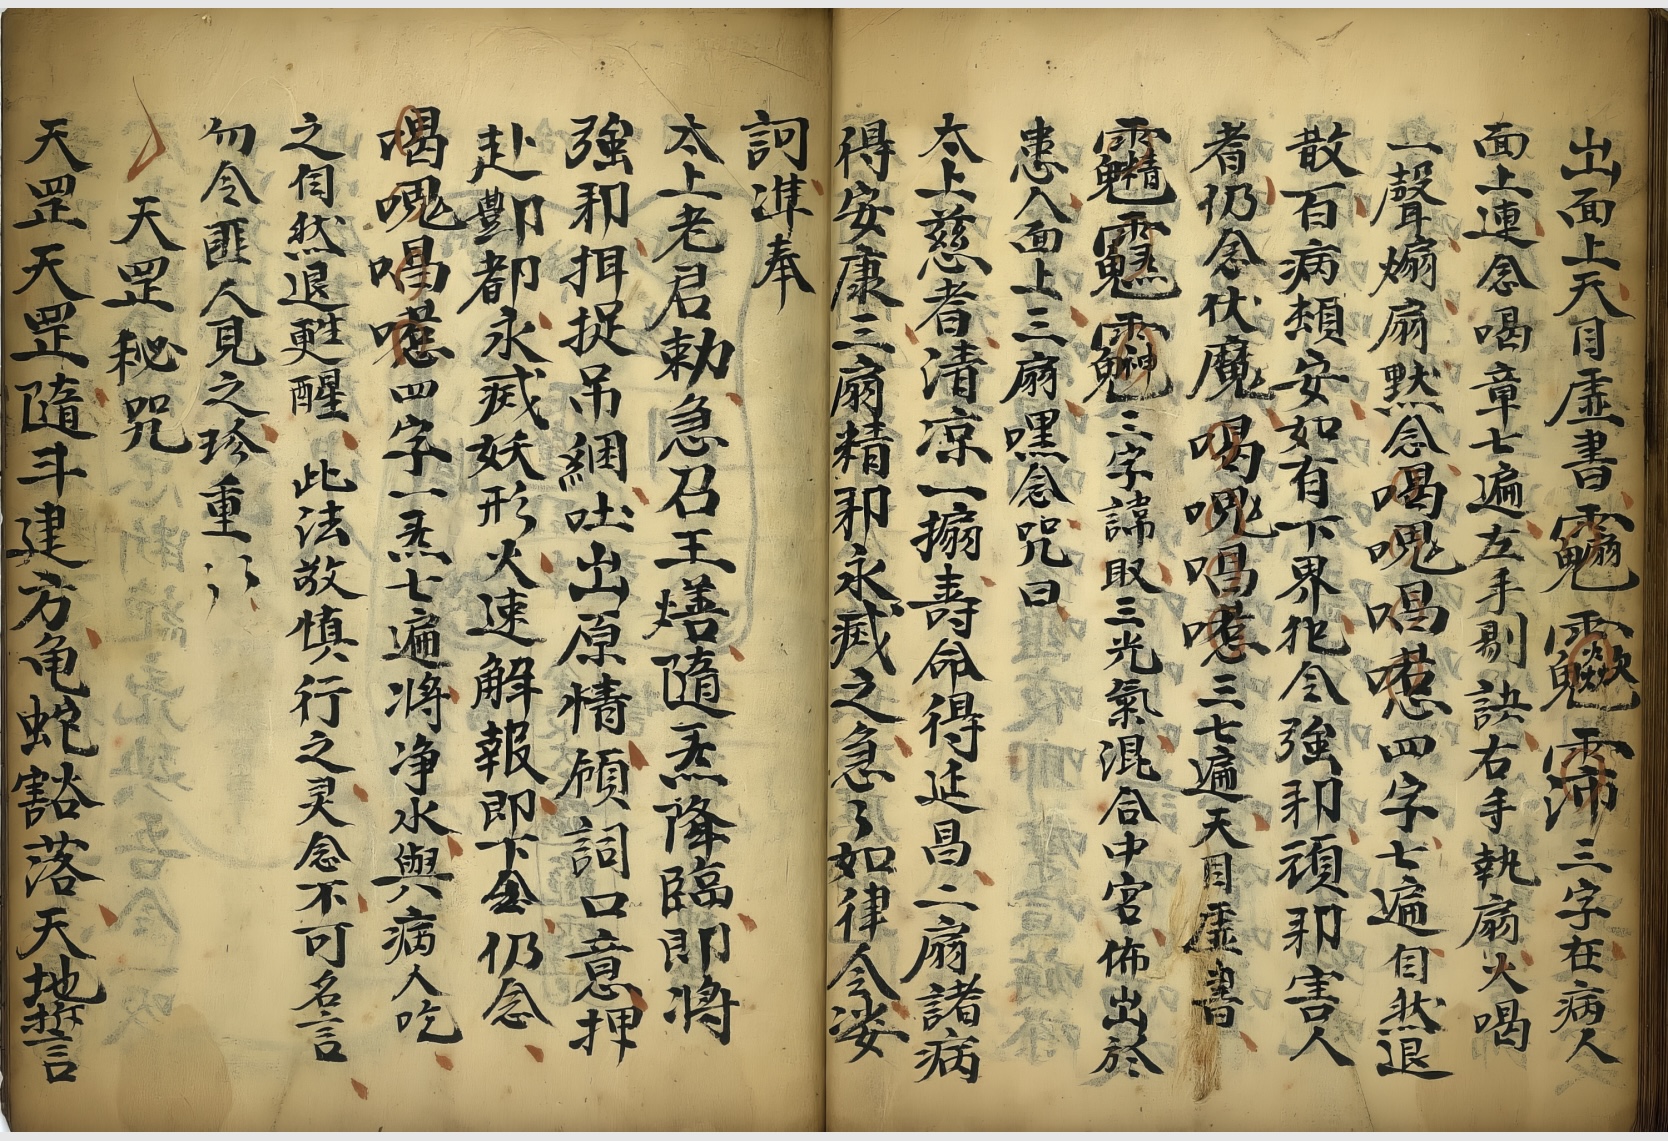 出面上天目虛書三字在病人
面上連念喝章七遍左手剔訣右手執扇火喝
一聲煽扇默念喝㖞唱嗯四字七遍自然退
散百病頹安如有下界犯令強邪頑邪害人
者仍念伏魔喝唱三七遍天目虛書
三字諱取三光氣混合中宮佈出於
患人面上三扇嘿念咒曰
太上慈者清凉一搧壽命得延昌二扇諸病
得安康三扇精邪永滅之急了如律令婆
訶準奉
太上老君勅急召王燌隨炁降臨即將
強邪揖捉吊綑吐出原情願詞口意押
赴酆都永滅妖形火速解報即下金仍念
喝唱四字一炁七遍將净水與病人吃
之自然退更甦醒 此法敬慎行之灵念不可名言
勿令匪人見之珍重
天罡秘咒
天罡天罡隨斗建方龟蛇豁落天地誓言